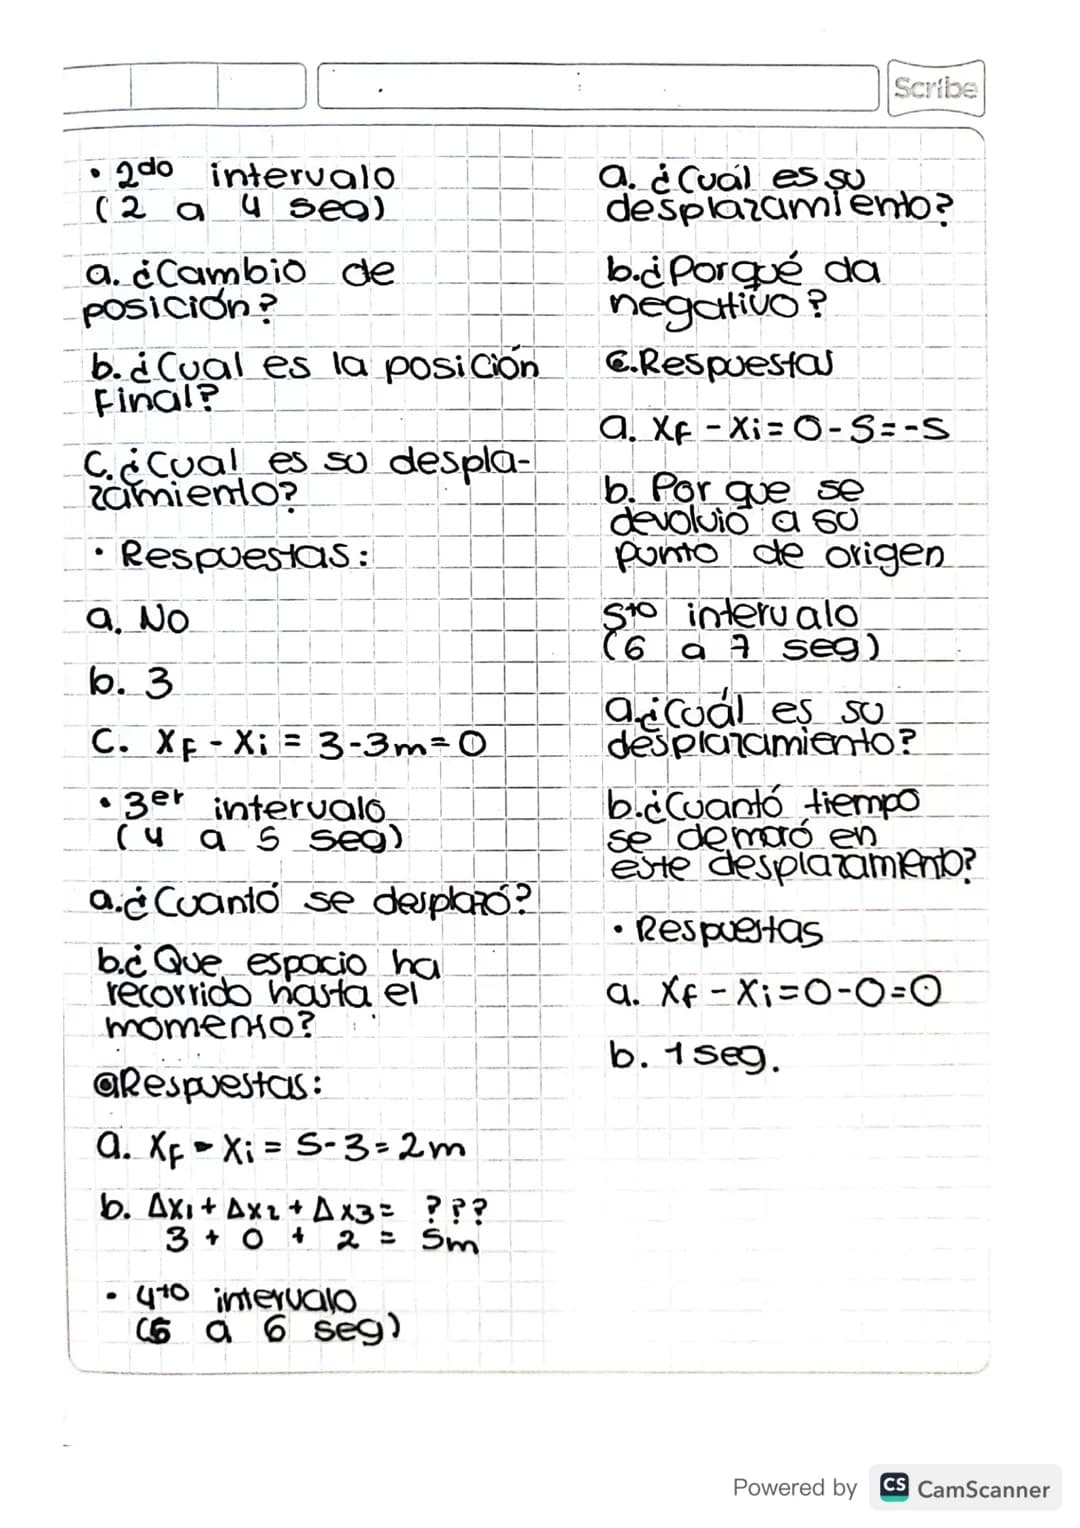 Scribe
• 2do intervalo
(2 a 4 seg)
a. ¿Cambio de
posición?
b. ¿Cual es la posición
Final?
C. ¿Cual es su despla-
zamiento?
• Respuestas:
a. No
b. 3
C. XF - Xi = 3-3m=0
• 3er intervalo
(4 a 5 seg)
a. ¿Cuantó se desplazó?
b. ¿Que espacio ha
recorrido hasta el
momento?
@Respuestas:
a. XF - Xi = 5-3=2m
b. ΔX1 + ΔX2 + ΔX3 = ???
3 + 0 + 2 = 5m
• 4to intervalo
(5 a 6 seg)
a. ¿Cuál es su
desplazamiento?
b. ¿Porqué da
negativo?
C. Respuestas
a. XF - Xi = 0-5=-5
b. Por que se
devolvió a su
punto de origen
5to intervalo
(6 a 7 seg)
a. ¿Cuál es su
desplazamiento?
b. ¿Cuantó tiempo
se demoró en
este desplazamiento?
• Respuestas
a. XF - Xi = 0-0=0
b. 1 seg.
Powered by CS CamScanner